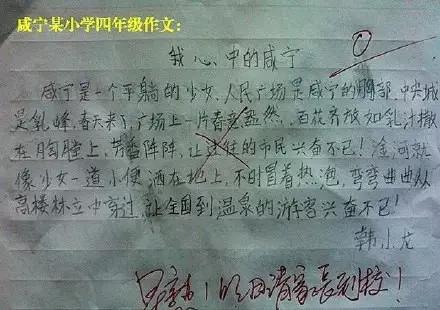 咸宁某小学四年级作文：
我心中的咸宁
咸宁是一个平躺的少女，人民广场是咸宁的胸部，中央城
是乳峰，春天来了，广场上一片春意盎然，百花齐放如乳汁撒
在胸膛上，芳香阵阵，让过往的市民兴奋不已！淦河就
像少女一道小便洒在地上，不时冒着热泡，弯弯曲曲从
高楼林立中穿过，让全国到温泉的游客兴奋不已！
韩小龙
！明日请家长到校！